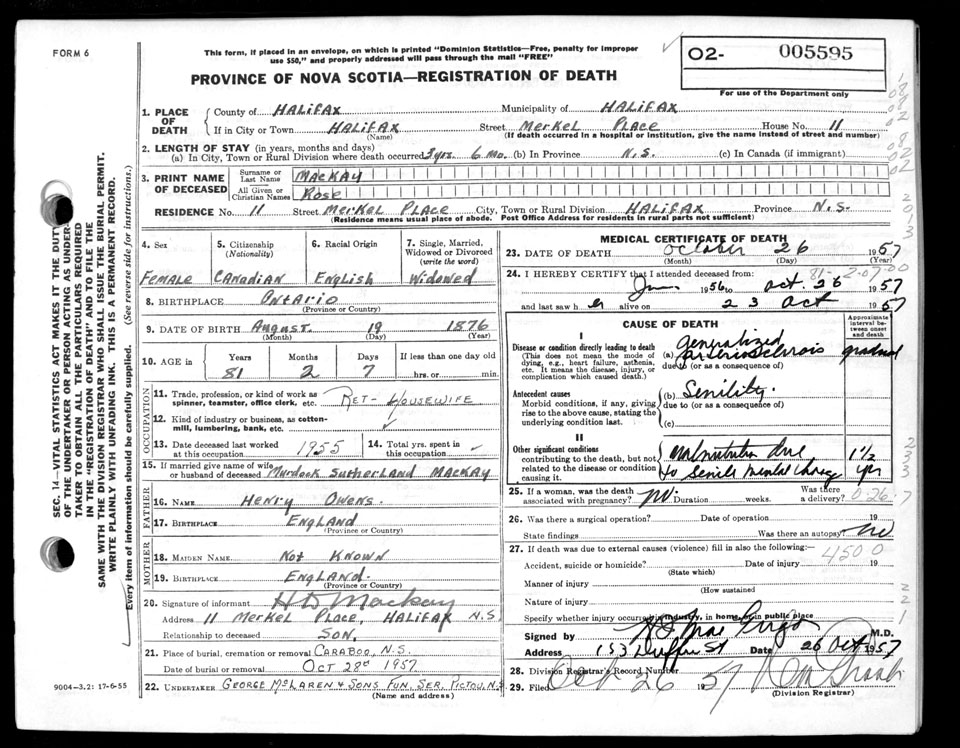 FORM 6
This form, if placed in an envelope, on which is printed "Dominion Statistics—Free, penalty for improper
use $50," and properly addressed will pass through the mail "FREE"
PROVINCE OF NOVA SCOTIA—REGISTRATION OF DEATH
O2- 005595
For use of the Department only
SEC. 14—VITAL STATISTICS ACT MAKES IT THE DUTY
OF THE UNDERTAKER OR PERSON ACTING AS UNDER-
TAKER TO OBTAIN ALL THE PARTICULARS REQUIRED
IN THE "REGISTRATION OF DEATH" AND TO FILE THE
SAME WITH THE DIVISION REGISTRAR WHO SHALL ISSUE THE BURIAL PERMIT.
WRITE PLAINLY WITH UNFADING INK. THIS IS A PERMANENT RECORD.
Every item of information should be carefully supplied. (See reverse side for instructions.)
1. PLACE OF DEATH County of HALIFAX Municipality of HALIFAX
If in City or Town HALIFAX Street MERKEL PLACE House No. 11
(Name) (If death occurred in a hospital or institution, give the name instead of street and number)
2. LENGTH OF STAY (in years, months and days)
(a) In City, Town or Rural Division where death occurred 3 yrs. 6 mo. (b) In Province N.S. (c) In Canada (if immigrant)
3. PRINT NAME OF DECEASED Surname or Last Name MACKAY
All Given or Christian Names ROSE
RESIDENCE No. 11 Street MERKEL PLACE City, Town or Rural Division HALIFAX Province N.S.
(Residence means usual place of abode. Post Office Address for residents in rural parts not sufficient)
4. Sex 5. Citizenship (Nationality) 6. Racial Origin 7. Single, Married, Widowed or Divorced (write the word)
FEMALE CANADIAN ENGLISH WIDOWED
8. BIRTHPLACE ONTARIO
(Province or Country)
9. DATE OF BIRTH AUGUST 19 1876
(Month) (Day) (Year)
10. AGE in Years Months Days If less than one day
81 2 7 hrs. or min.
OCCUPATION
11. Trade, profession, or kind of work as spinner, teamster, office clerk, etc. RET- HOUSEWIFE
12. Kind of industry or business, as cotton-mill, lumbering, bank, etc.
13. Date deceased last worked at this occupation 1955 14. Total yrs. spent in this occupation
15. If married give name of wife or husband of deceased MURDOCK SUTHERLAND MACKAY
FATHER
16. NAME HENRY OWENS.
17. BIRTHPLACE ENGLAND
(Province or Country)
MOTHER
18. MAIDEN NAME NOT KNOWN
19. BIRTHPLACE ENGLAND.
(Province or Country)
20. Signature of informant H D Mackay
Address 11 MERKEL PLACE, HALIFAX N.S
Relationship to deceased SON.
21. Place of burial, cremation or removal CARABOO, N.S.
Date of burial or removal OCT 28th 1957
22. UNDERTAKER GEORGE McLAREN & SONS FUN. SER. PICTOU, N.S
(Name and address)
9004—3.2: 17-6-55
MEDICAL CERTIFICATE OF DEATH
23. DATE OF DEATH October 26 1957
(Month) (Day) (Year)
81- 2-07-00
24. I HEREBY CERTIFY that I attended deceased from:
Jan. 1956 to Oct. 26 1957
and last saw h er alive on 23 Oct 1957
CAUSE OF DEATH
Approximate interval between onset and death
I
Disease or condition directly leading to death
(This does not mean the mode of dying, e.g., heart failure, asthenia, etc. It means the disease, injury, or complication which caused death.)
(a) Generalized arteriosclerosis gradual
due to (or as a consequence of)
Antecedent causes
Morbid conditions, if any, giving rise to the above cause, stating the underlying condition last.
(b) Senility.
due to (or as a consequence of)
(c)
II
Other significant conditions
contributing to the death, but not related to the disease or condition causing it.
Malnutrition due to Senile mental change 1½ yrs
25. If a woman, was the death associated with pregnancy? no. Duration weeks. Was there a delivery?
0-26-7
26. Was there a surgical operation? Date of operation 19
State findings Was there an autopsy? no
27. If death was due to external causes (violence) fill in also the following:—
4500
Accident, suicide or homicide? Date of injury 19
(State which)
Manner of injury
(How sustained
Nature of injury
Specify whether injury occurred in industry, in home, or in public place
Signed by M.D.
Address 153 Duffus St Date 26 Oct 1957
28. Division Registrar's Record Number
29. Filed Oct 26 1957
(Division Registrar)